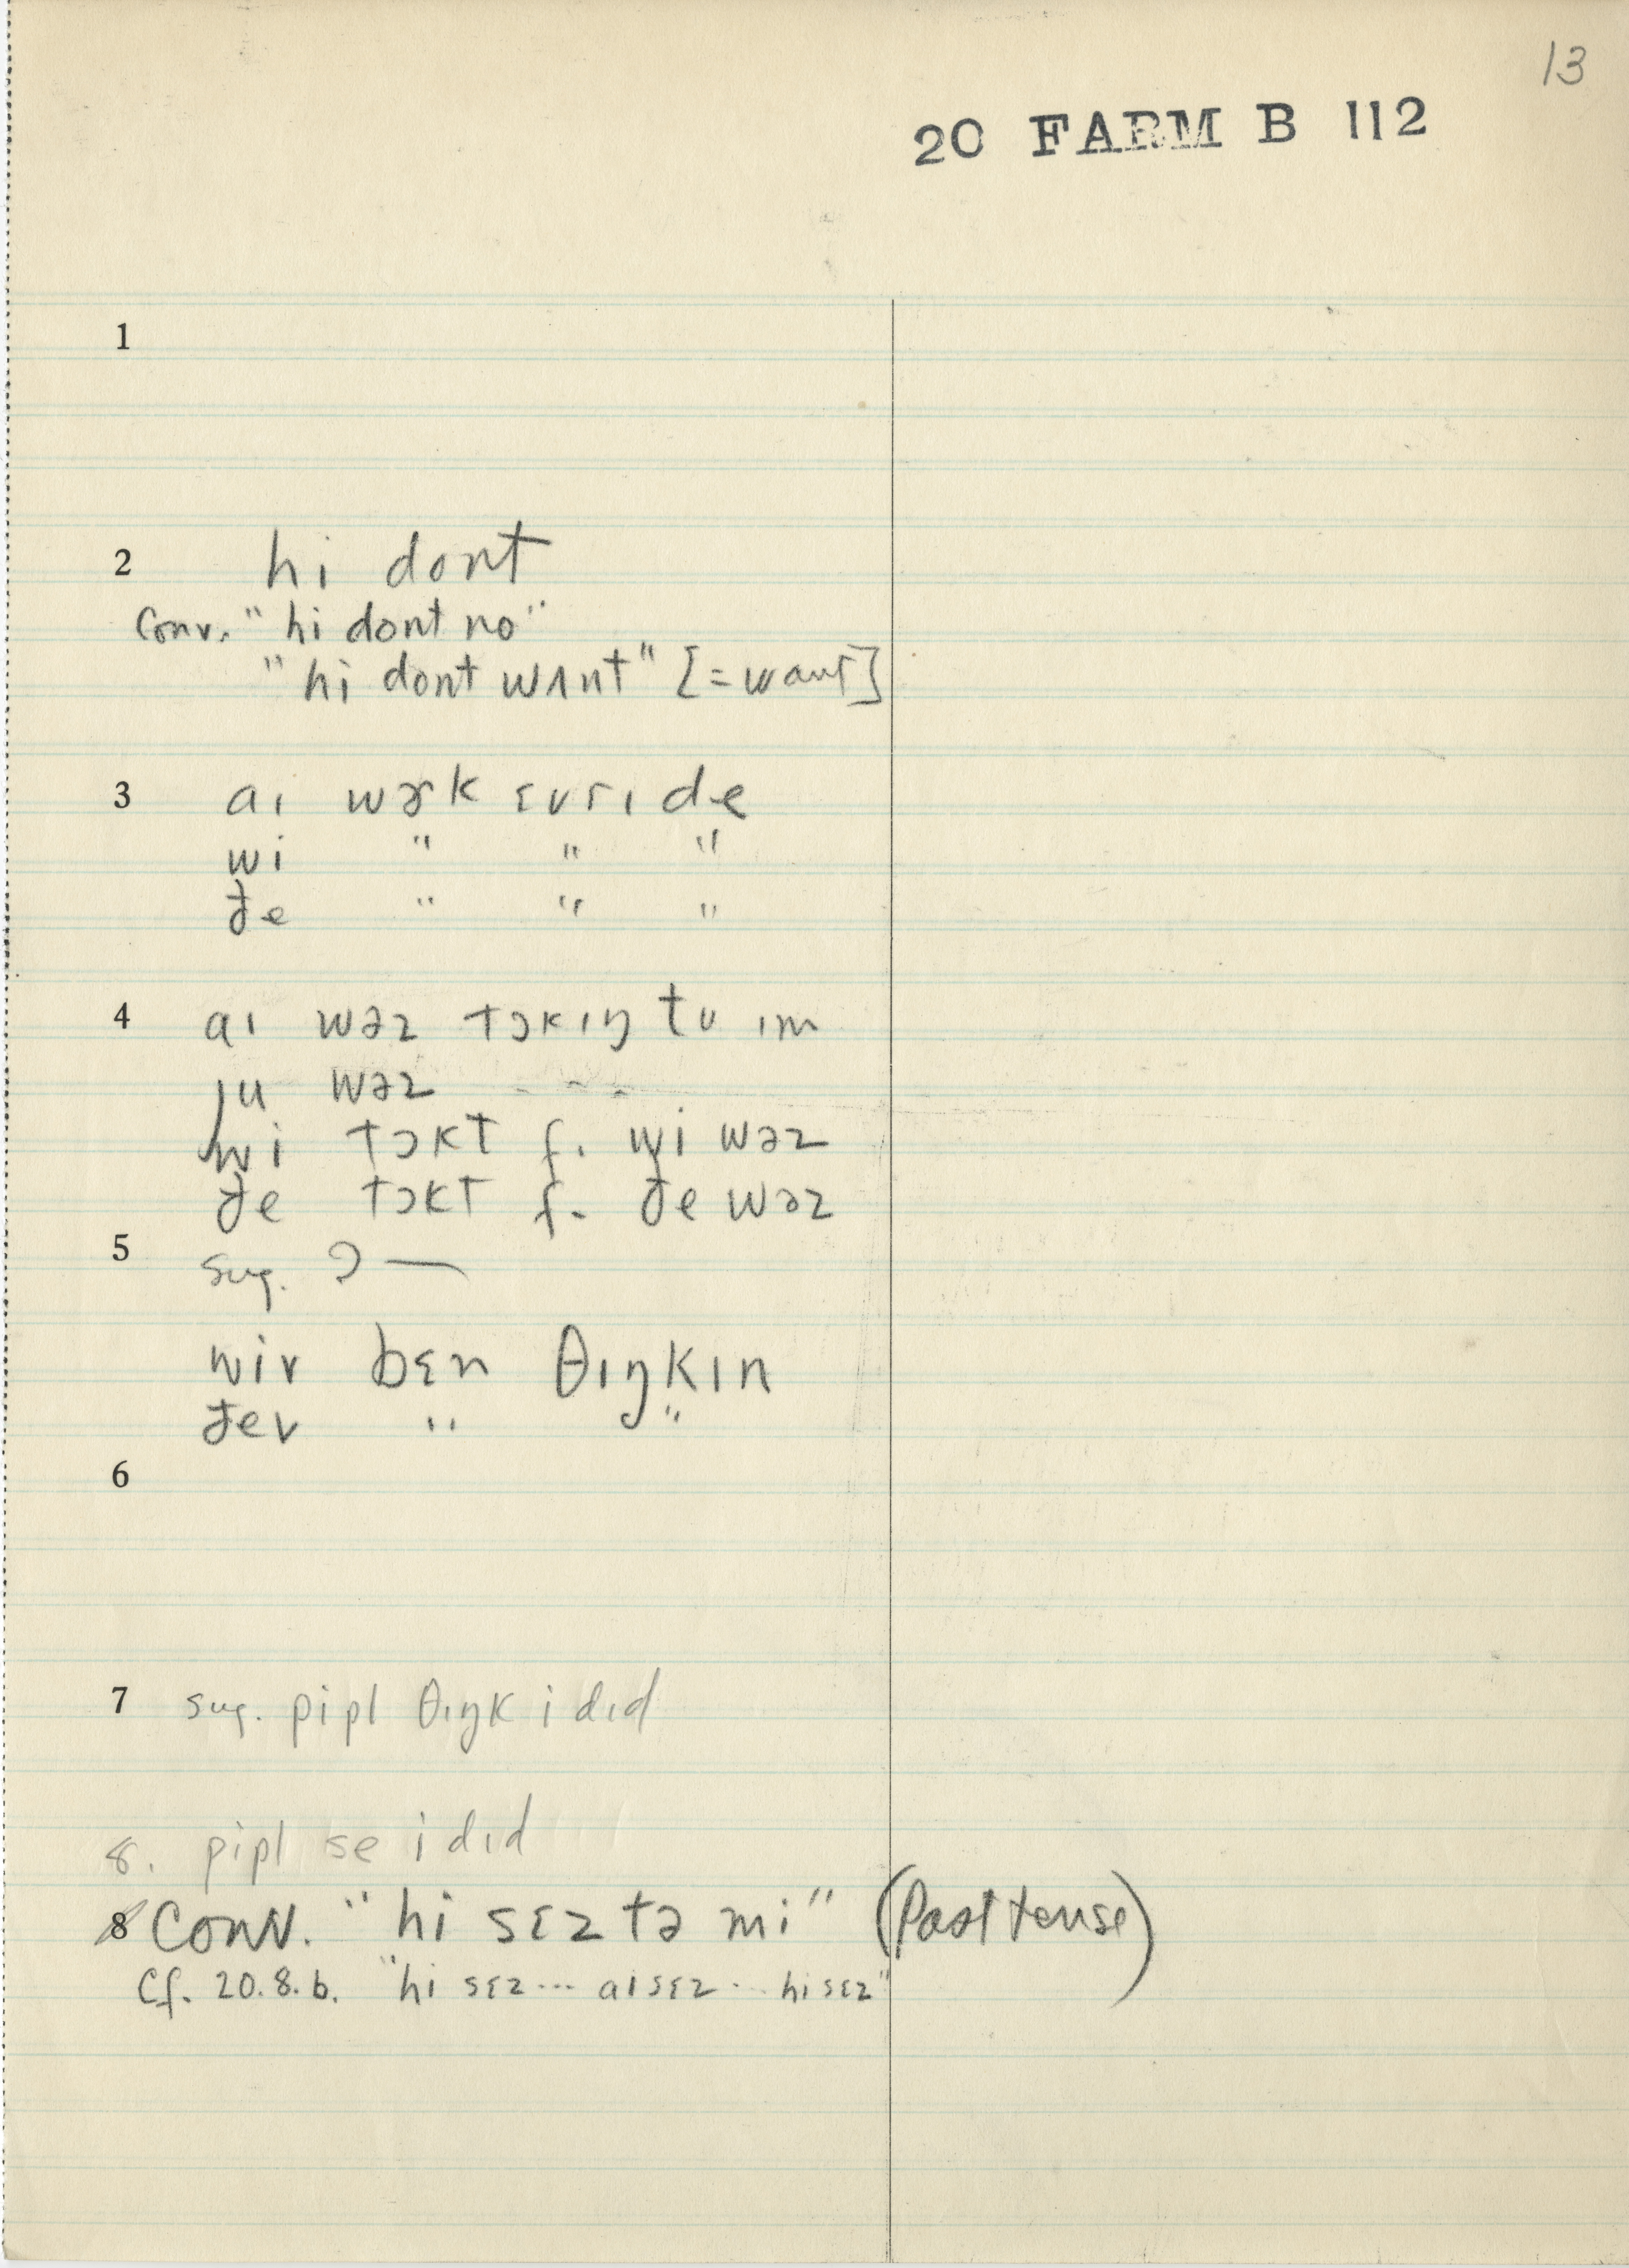 13
20 FARM B 112
1
2 hi dont
Conv. "hi dont no"
"hi dont wʌnt" [=want]
3 aɪ wɚk ɛvrɪ de
wi " " "
ðe " " "
4 aɪ wəz tɔkɪŋ tʊ ɪm
ju wəz - - -
wi tɔkt f. wi wəz
ðe tɔkt f. ðe wəz
5 sug. ? —
wiv bɛn θɪŋkɪn
ðev " "
6
7 sug. pipl θɪŋk i dɪd
8. pipl se i dɪd
8 Conv. "hi sɛz tə mi" (Past tense)
Cf. 20.8.b. "hi sɛz... aɪ sɛz.. hi sɛz"